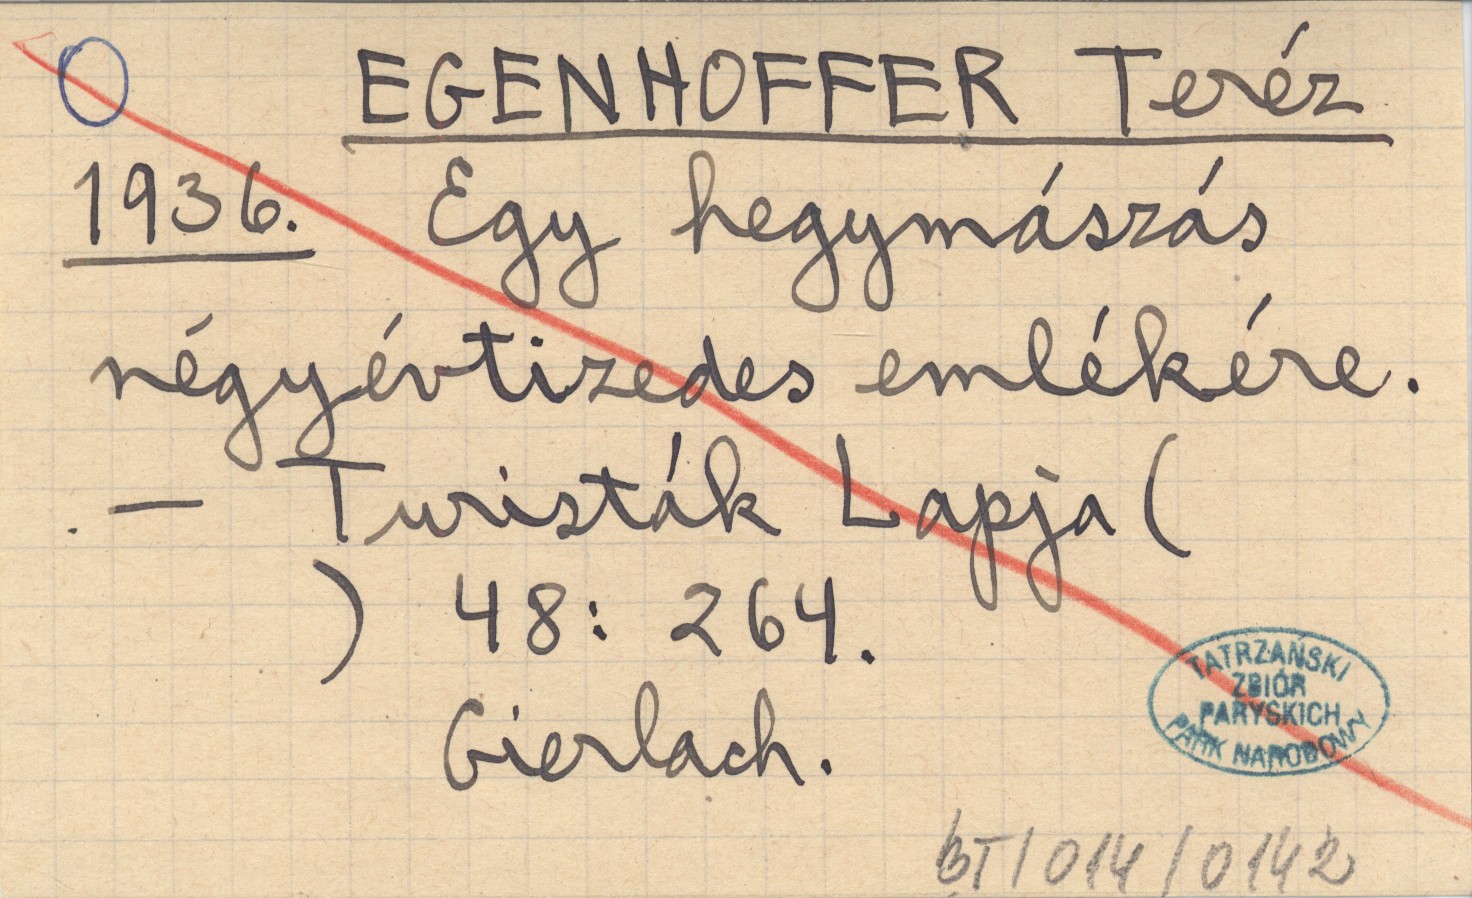 EGENHOFFER Teréz
1936. Egy hegymászás
négyévtizedes emlékére.
. — Turisták Lapja (
) 48: 264.
Gierlach.
TATRZAŃSKI
ZBIÓR
PARYSKICH
PARK NARODOWY
BT/014/0142